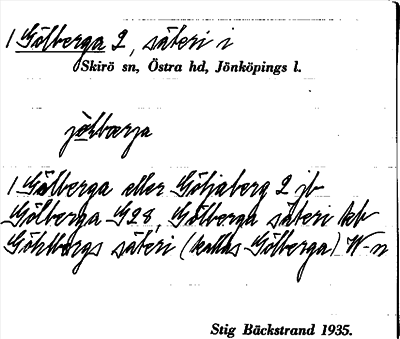 1 Gölberga 2, säteri i
Skirö sn, Östra hd, Jönköpings l.
jölbærja
1 Gölberga eller Göljaberg 2 jb
Gölberga G28, Gölberga säteri kb
Göhlbergs säteri (kallas Gölberga) W-n
Stig Bäckstrand 1935.